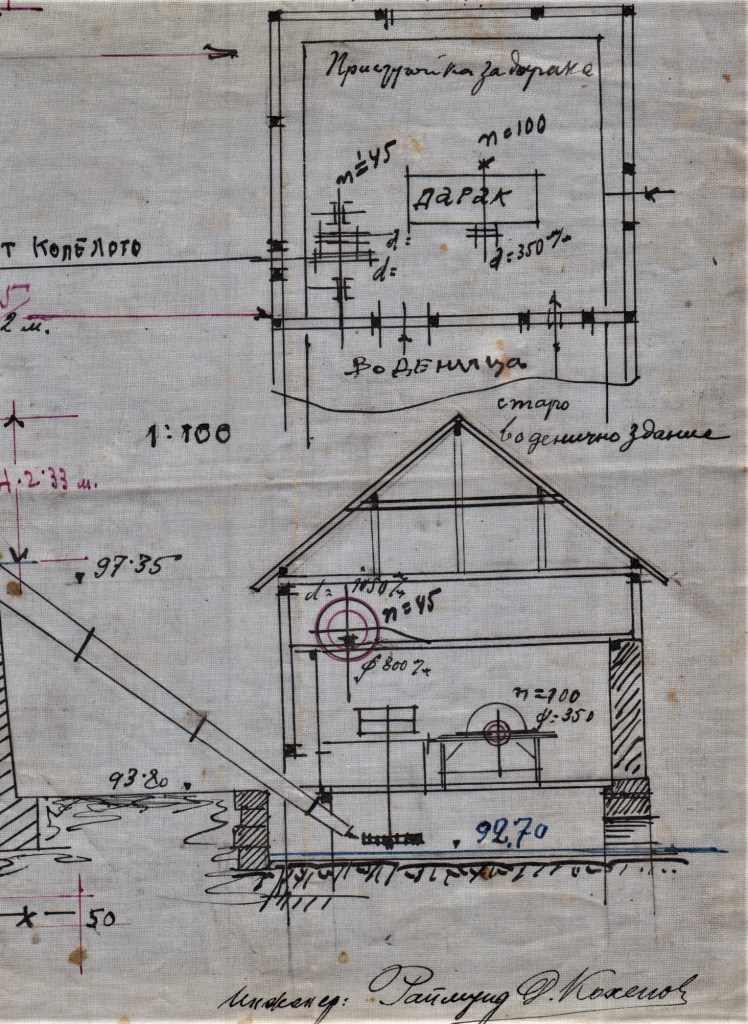 Пристройка за дарака
n=100
n=45
ДАРАК
d=
d=350 м/м
d=
т Колелото
2 м.
ВОДЕНИЦА
старо
воденично здание
1:100
H=2.33 м.
97.35
d= 1050 м/м
n=45
ф 800 м/м
n=100
ф=350
93.80
92.70
50
Инженер: Раймунд